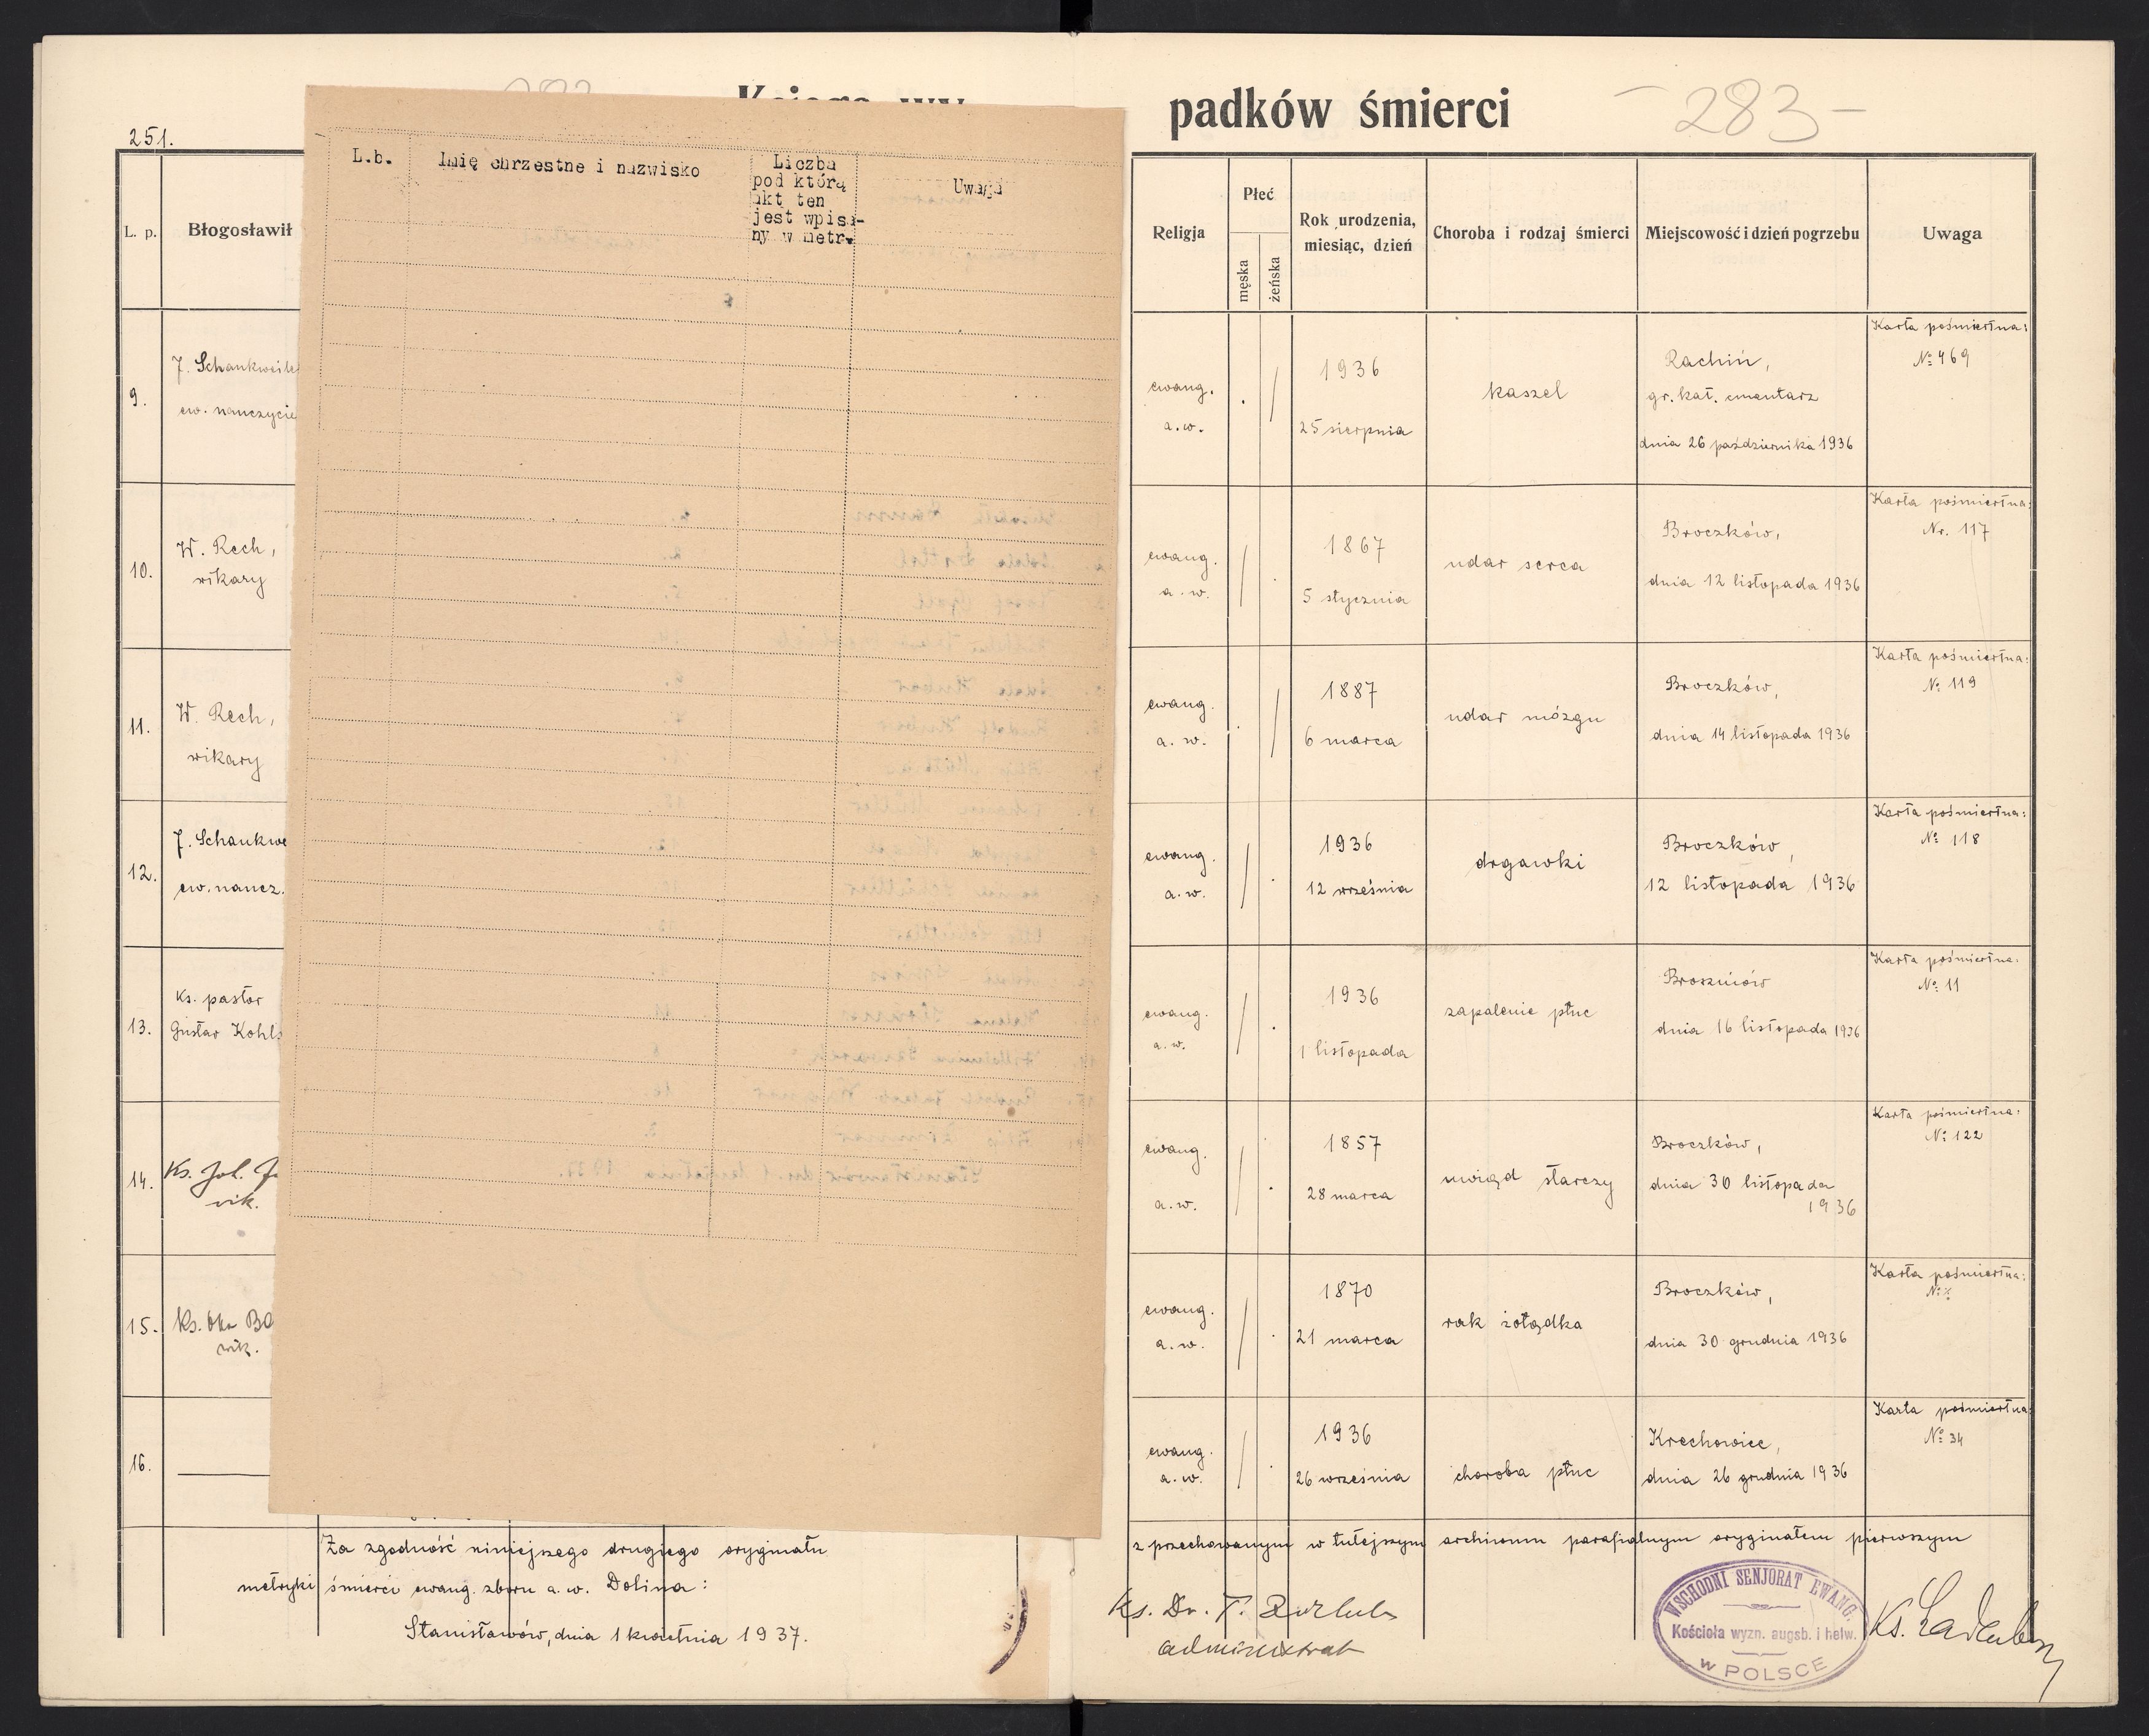 padków śmierci
- 283 -
251.
L. p.
Błogosławił
L.b.
Imię chrzestne i nazwisko
Liczba
pod którą
akt ten
jest wpisa-
ny w metr.
Uwaga
Religja
Płeć
męska
żeńska
Rok urodzenia,
miesiąc, dzień
Choroba i rodzaj śmierci
Miejscowość i dzień pogrzebu
Uwaga
9.
J. Schankweiler
ew. nauczycie
ewang.
a.w.
1936
25 sierpnia
kaszel
Rachiń,
gr. kat. cmentarz
dnia 26 października 1936
Karta pośmiertna:
№ 469
10.
W. Rech,
wikary
ewang.
a.w.
1867
5 stycznia
udar serca
Broczków,
dnia 12 listopada 1936
Karta pośmiertna:
Nr. 117
11.
W. Rech,
wikary
ewang.
a.w.
1887
6 marca
udar mózgu
Broczków,
dnia 14 listopada 1936
Karta pośmiertna:
№ 119
12.
J. Schankwe
ew. naucz.
ewang.
a.w.
1936
12 września
drgawki
Broczków,
12 listopada 1936
Karta pośmiertna:
№ 118
13.
Ks. pastor
Gustav Kohls
ewang.
a.w.
1936
1 listopada
zapalenie płuc
Broszniów
dnia 16 listopada 1936
Karta pośmiertna:
№ 11
14.
Ks. Joh.
vik.
ewang.
a.w.
1857
28 marca
uwiąd starczy
Broczków,
dnia 30 listopada
1936
Karta pośmiertna:
№ 122
15.
Ks.
wik.
ewang.
a.w.
1870
21 marca
rak żołądka
Broczków,
dnia 30 grudnia 1936
Karta pośmiertna:
16.
ewang.
a.w.
1936
26 września
choroba płuc
Krechowice,
dnia 26 grudnia 1936
Karta pośmiertna:
№ 34
Za zgodność niniejszego drugiego oryginału
z przechowanym w tutejszym archiwum parafialnym oryginałem pierwszym
metryki śmierci ewang. zboru a.w. Dolina:
Stanisławów, dnia 1 kwietnia 1937.
Ks. Dr. T.
WSCHODNI SENJORAT EWANG.
Kościoła wyzn. augsb. i helw.
w POLSCE